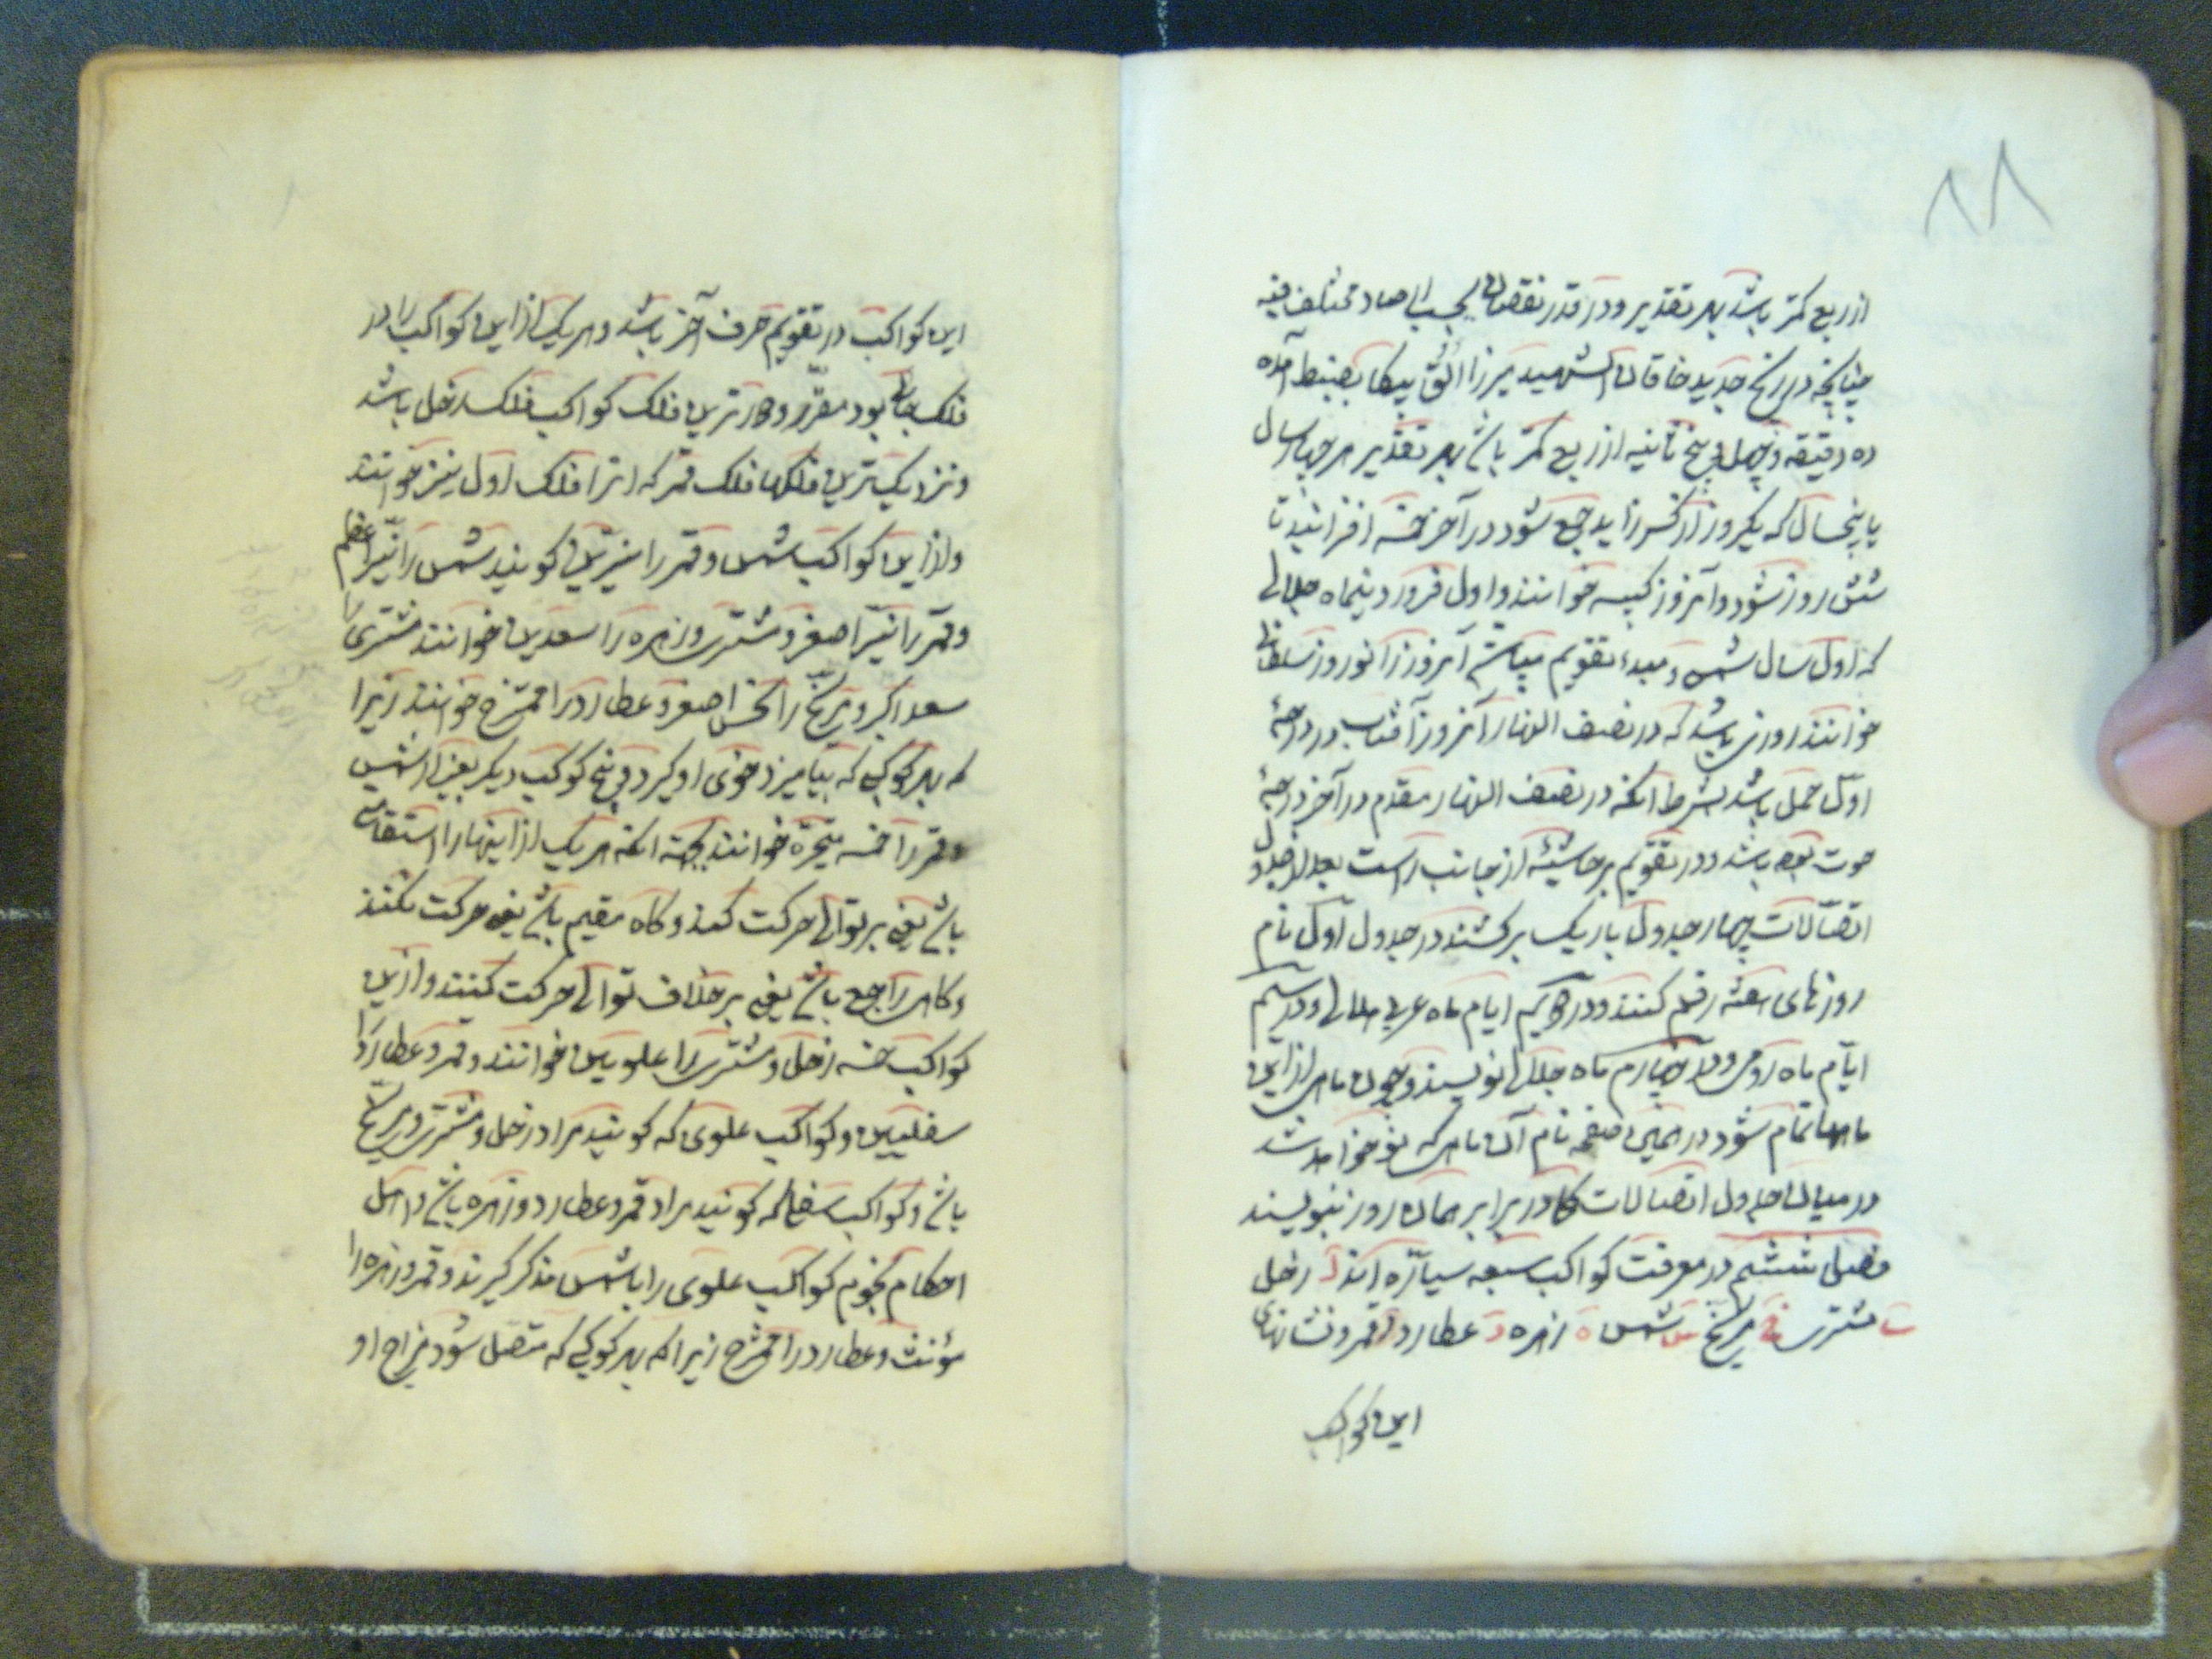 ١١
از ربع کمتر باشد بهر تقدیر و در قدر نقصان بحسب ارصاد مختلف فیه
چنانچه در زیج جدید خاقان الشهید میرزا الغ بیکا بضبط آمده
ده دقیقه و چهل و پنج ثانیه از ربع کمتر باش بهر تقدیر هر چهار سال
یا پنجسال که یکروز از کسر زاید جمع شود در آخر خمسه افزایند تا
شش روز شود و آنروز کبیسه خوانند و اول فروردینماه جلالی
که اول سال شمسی و مبدء تقویم میباشد آنروز را نوروز سلطانی
خوانند روزی باشد که در نصف النهار آنروز آفتاب در درجهٔ
اول حمل باشد بشرط آنکه در نصف النهار مقدم در آخر درجهٔ
حوت بوده باشد و در تقویم بر حاشیهٔ از جانب راست جدول
اتصالات چهار جدول باریک برکشند در جدول اول نام
روزهای هفته رقم کنند و در دویم ایام ماه عربی هلالی و در سیم
ایام ماه رومی و در چهارم ماه جلالی نویسند و چون ماهی از این
ماهها تمام شود در همین صفحه نام آن ماهی که نو خواهد شد
در میان جدول اتصالات در برابر همان روز بنویسند
فصل ششم در معرفت کواکب سبعه سیاره اند ل زحل
ی مشتری خ مریخ س شمس ه زهره د عطارد ر قمر و نشانهای
این کواکب
این کواکب در تقویم حرف آخر باشد و هر یکی از این کواکب را در
فلک جای بود مقرّر و دورترین فلک کواکب فلک زحل باشد
و نزدیک ترین فلکها فلک قمر که انرا فلک اول نیز خوانند
و از این کواکب شمس و قمر را نیرین کویند شمس را نیّر اعظم
و قمر را نیّر اصغر و مشتری و زهره را سعدین خوانند مشتری را
سعد اکبر و مریخ را نحس اصغر و عطارد را ممتزج خوانند زیرا
که بهر کوکبی که بیامیزد خوی او کیرد و پنج کوکب دیکر بغیر از شمس
و قمر را خمسه متحیره خوانند بجهته انکه هر یک از اینها را استقامت
باش یعنی بر توالی حرکت کنند و کاه مقیم باش یعنی حرکت نکنند
و کاهی راجع باش یعنی بر خلاف توالی حرکت کنند و ازین
کواکب خمسه زحل و مشتری را علویین خوانند و قمر و عطارد را
سفلیین و کواکب علوی که کویند مراد زحل و مشتری و مریخ
باش و کواکب سفلی که کویند مراد قمر و عطارد و زهره باش و اهل
احکام نجوم کواکب علوی را با شمس مذکر کیرند و قمر و زهره را
مؤنث و عطارد را ممتزج زیرا که بهر کوکبی که متصل شود مزاج او